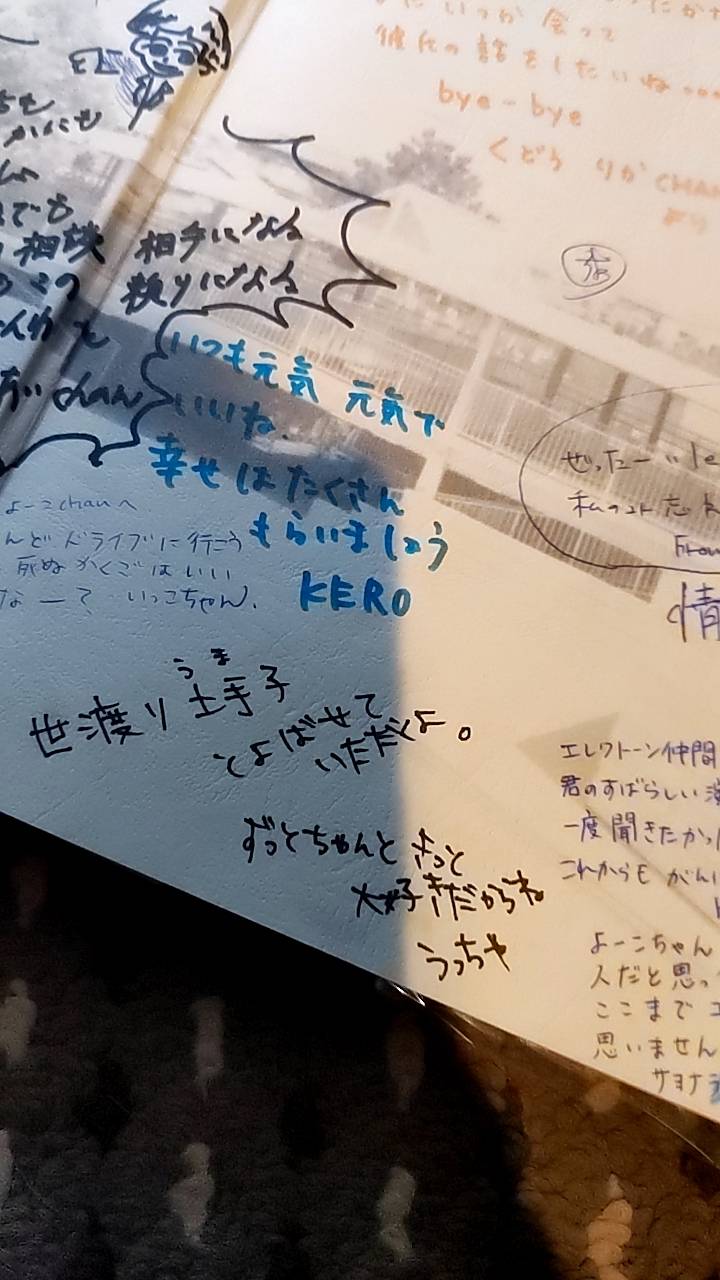 いつか会って
彼氏の話をしたいね
bye-bye
くどう りか CHAN
より
かにも
でも
相談 相手になる
頼りになる
chan
いつも元気 元気で
いいね.
幸せはたくさん
もらいましょう
KERO
よーこchanへ
んど ドライブに行こう
死ぬかくごはいい
なーて いっこちゃん.
ぜったーい
私のコト忘
From
情
うま
世渡り土手子
とよばせて
いただくよ。
ずっとちゃんと きっと
大好きだからね
うっちゃ
エレクトーン仲間
君のすばらしい演
一度聞きたかっ
これからも がん
よーこちゃん
人だと思っ
ここまで エ
思いません
サヨナラ